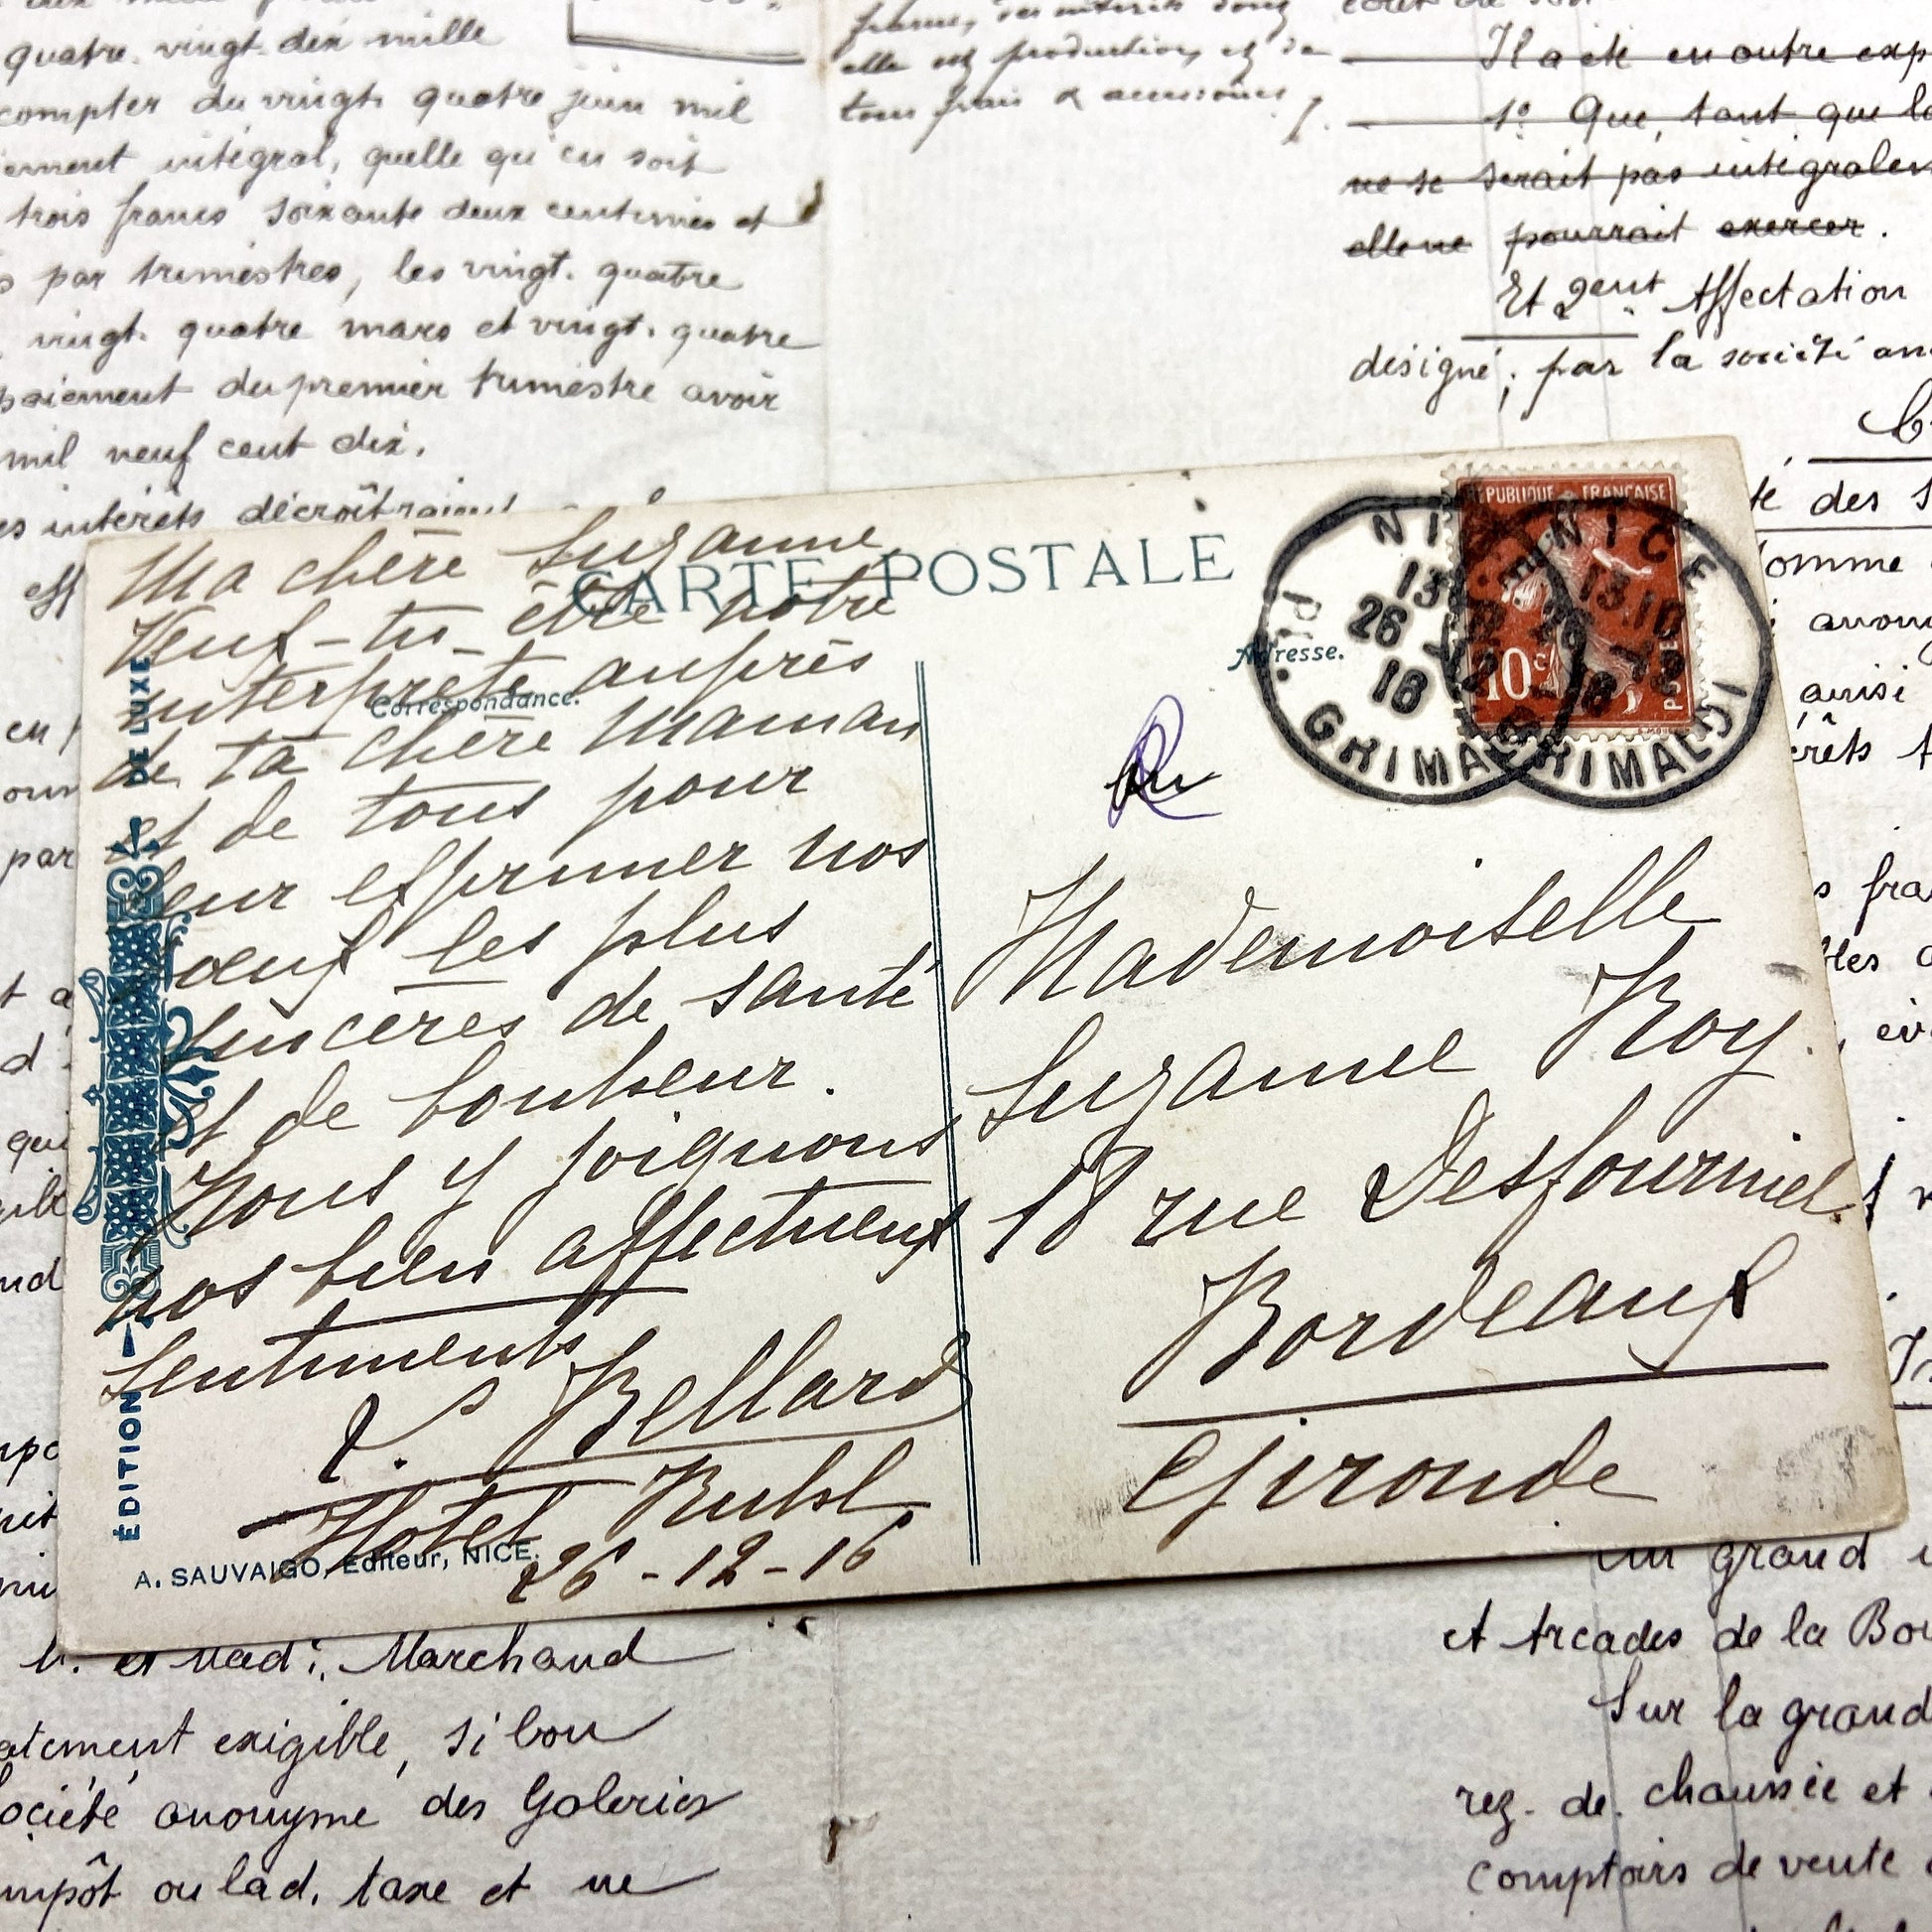 quatre. vingt. dix mille
compter du vingt. quatre juin mil
intégral, quelle qu'en soit
trois francs soixante deux centimes et
par trimestres, les vingt. quatre
vingt. quatre mars et vingt. quatre
paiement du premier trimestre avoir
mil neuf cent dix.
intérêts décroîtraient
elle est production, et de
tous frais & accessoires
Il a été en outre exp
1° Que, tant que la
ne se serait pas intégralem
elle ne pourrait exercer.
Et 2ent Affectation
désigné; par la société an
té des
omme
anony
ainsi
érêts
CARTE POSTALE
Correspondance.
Adresse.
Ma chère Suzanne
Veux-tu être notre
interprète auprès
de ta chère Maman
et de tous pour
leur exprimer nos
vœux les plus
sincères de santé
et de bonheur.
Nous y joignons
nos bien affectueux
sentiments
L. Bellard
Hotel Ruhl
26-12-16
ÉDITION DE LUXE
A. SAUVAIGO, Editeur, NICE.
REPUBLIQUE FRANÇAISE
10c
POSTES
NICE
13 10
26 -12
16
GRIMALDI
NICE
13 10
26 -12
16
GRIMALDI
Mademoiselle
Suzanne Roy
18 rue Desfourniel
Bordeaux
Gironde
M. et Mad: Marchand
exigible, si bon
ociété anonyme des Galeries
mpôt ou lad. taxe et ne
un grand
et Arcades de la Bou
Sur la grand
rez. de. chaussée et
comptoirs de vente